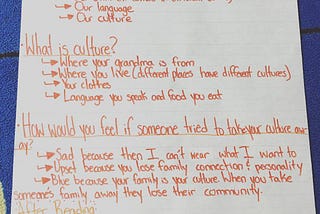 ↳ Our language
↳ Our culture
·What is culture?
↳ Where your grandma is from
↳ Where you live (different places have different cultures)
↳ Your clothes
↳ Language you speak and food you eat
·How would you feel if someone tried to take your culture aw-
ay?
↳ Sad because then I can't wear what I want to
↳ Upset because you lose family connection & personality
↳ Blue because your family is your culture. When you take
someone's family away they lose their community.
After Reading: